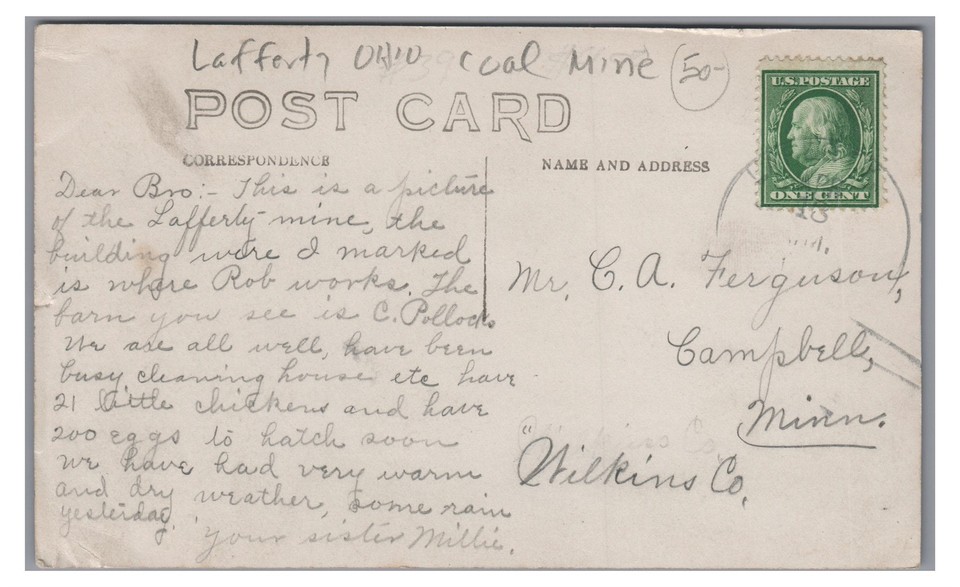 Lafferty OHIO Coal Mine (50-)
POST CARD
U.S. POSTAGE
ONE CENT
CORRESPONDENCE
NAME AND ADDRESS
Dear Bro:- This is a picture
of the Lafferty mine, the
building were I marked
is where Rob works. The
barn you see is C. Pollocks
We are all well, have been
busy cleaning house etc have
21 little chickens and have
200 eggs to hatch soon
We have had very warm
and dry weather, some rain
yesterday. Your sister Millie.
Mr. C. A. Ferguson,
Campbell,
Minn.
"Wilkins Co.